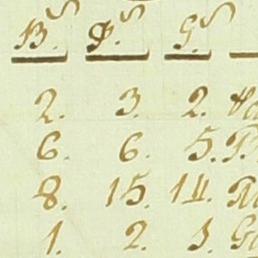 B.s P.s G.s
2. 3. 2.
6. 6. 5.
8. 15. 14.
1. 2. 3.